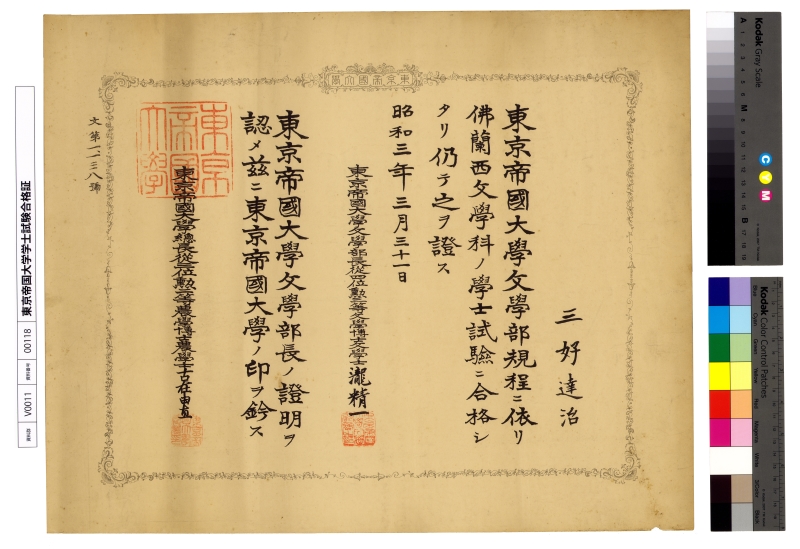 東京帝國大學
三好達治
東京帝國大學文學部規程ニ依リ
佛蘭西文學科ノ學士試驗ニ合格シ
タリ仍テ之ヲ證ス
昭和三年三月三十一日
東京帝國大學文學部長從四位勳三等文學博士文學士瀧精一
東京帝國大學文學部長ノ證明ヲ
認メ茲ニ東京帝國大學ノ印ヲ鈐ス
東京帝國大學總長從三位勳二等農學博士農學士古在由直
文第一二三八號
東京帝国大学学士試験合格証
00118
V0011
Kodak Gray Scale
A 1 2 3 4 5 6 M 8 9 10 11 12 13 14 15 B 17 18 19
C
Y
M
Kodak Color Control Patches
Blue
Cyan
Green
Yellow
Red
Magenta
White
3/Color
Black